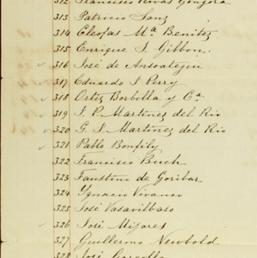 312 Francisco Rivas Góngora
313 Patricio Sanz
314 Cleofas Mª Benitez
315 Enrique J. Gibbon
316 José de Ansoategui
317 Eduardo J. Perry
318 Ortiz Borbolla y Cª
319 J. P. Martinez del Rio
320 G. J. Martinez del Rio
321 Pablo
322 Francisco Buch
323 Faustino de Goribar
324 Ygnacio Vivanco
325 José Vasavilbaso
326 José Mijares
327 Guillermo Newbold
328 José